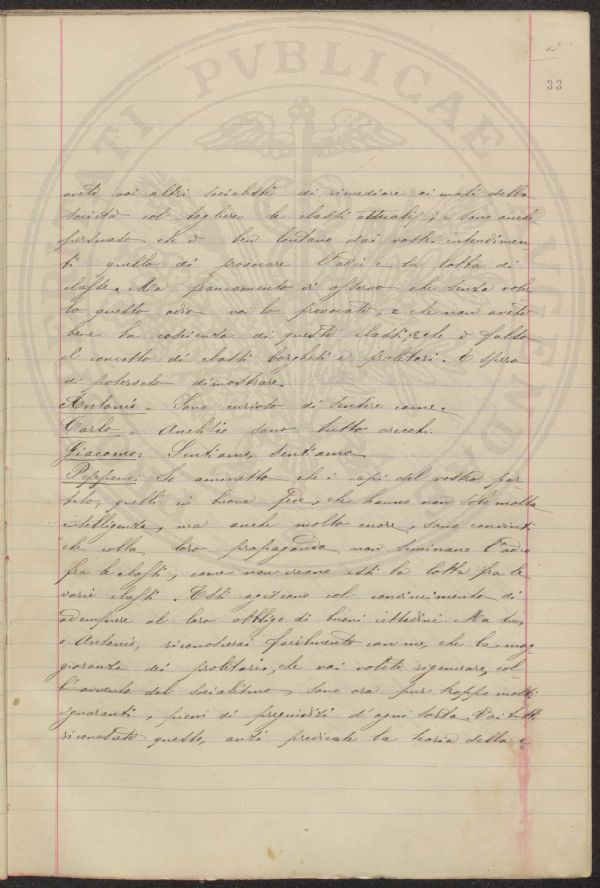 33
avete voi altri socialisti di rimediare ai mali della
società col togliere le classi attuali; e sono anche
persuaso che è ben lontano dai vostri intendimen
ti quello di provocare l'odio e la lotta di
classe. Ma francamente vi assicuro che senza voler
lo questo odio voi lo provocate, e che non avete
bene la coscienza di queste classi, e che è falso
il concetto di classi borghesi e proletari. E spero
di potervelo dimostrare.
Antonio - Sono curioso di sentire come.
Carlo - Anch'io sono tutto orecchi.
Giacomo: Sentiamo, sentiamo
Peppino: Io ammetto che i capi del vostro par
tito, quelli in buona fede, che hanno non solo molta
intelligenza, ma anche molto cuore, sono convinti
che colla loro propaganda non seminano l'odio
fra le classi, come non creano essi la lotta fra le
varie classi. Essi agiscono col convincimento di
adempiere al loro obbligo di buoni cittadini. Ma tu
o Antonio, riconoscerai facilmente con me, che la mag
gioranza dei proletari, che voi volete rigenerare, col
l'avvento del socialismo, sono ora pur troppo molti
ignoranti, pieni di pregiudizi d'ogni sorta. Voi tutti
riconoscete questo, anzi predicate la teoria della e